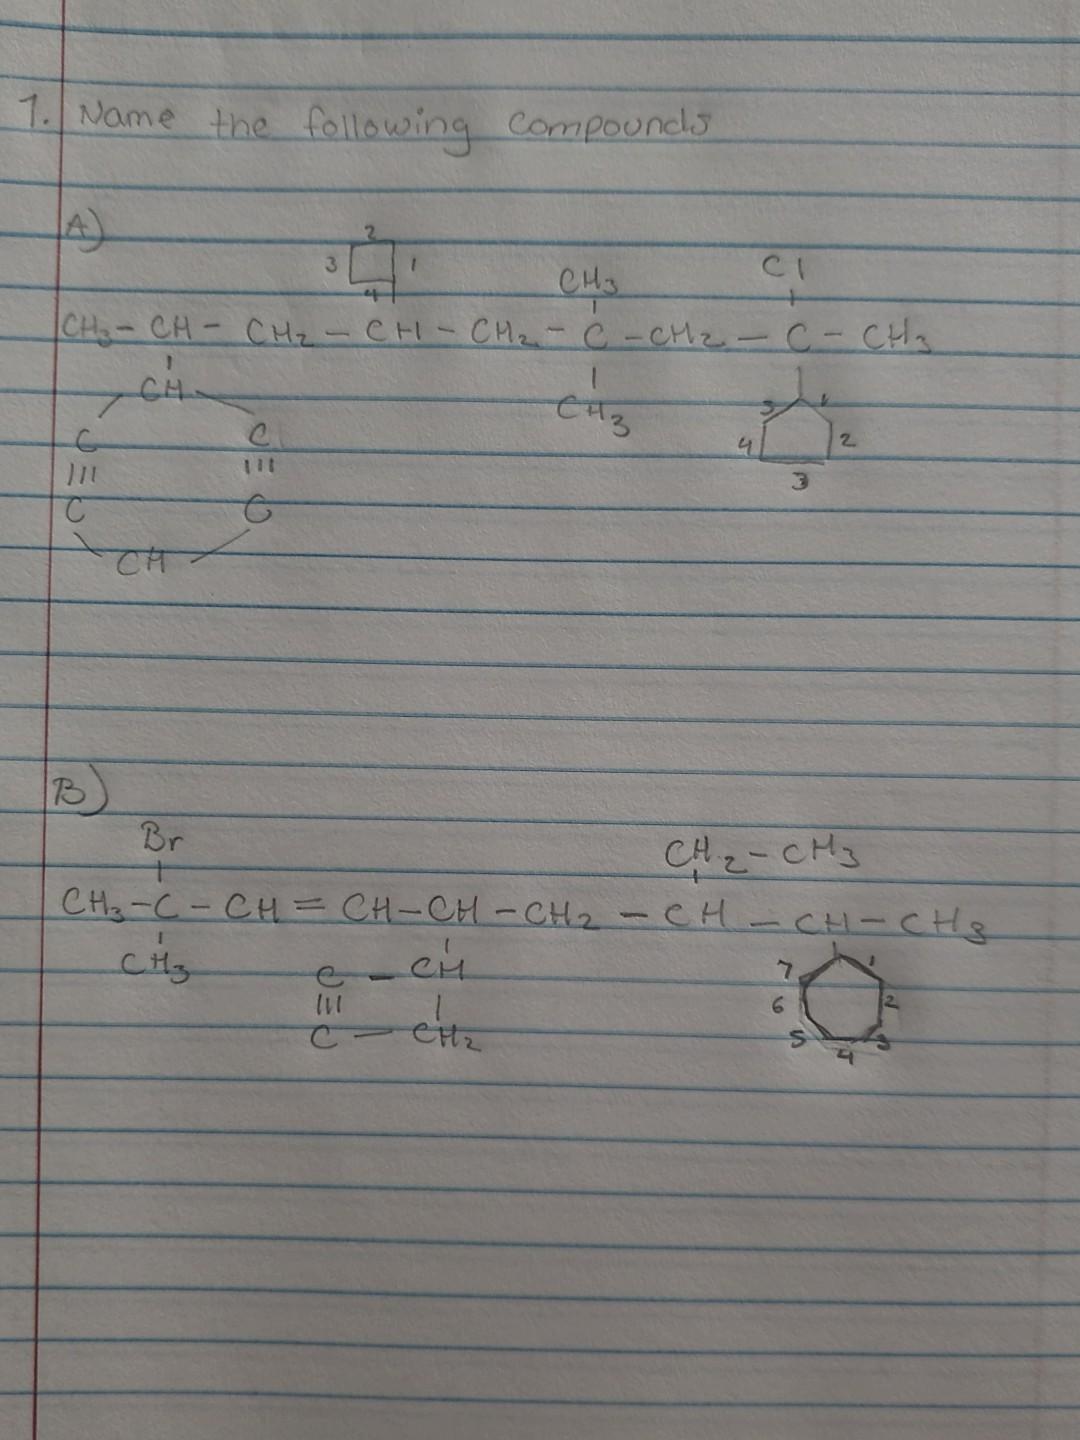 1. Name the following compounds
A)
2
3 1
4
CH3 Cl
CH3 - CH - CH2 - CH - CH2 - C - CH2 - C - CH3
CH
CH3
5 1
C C
4 2
||| |||
3
C C
CH
B)
Br
CH2 - CH3
CH3 - C - CH = CH - CH - CH2 - CH - CH - CH3
CH3
C - CH
7 1
||| |
6 2
C - CH2
5 3
4